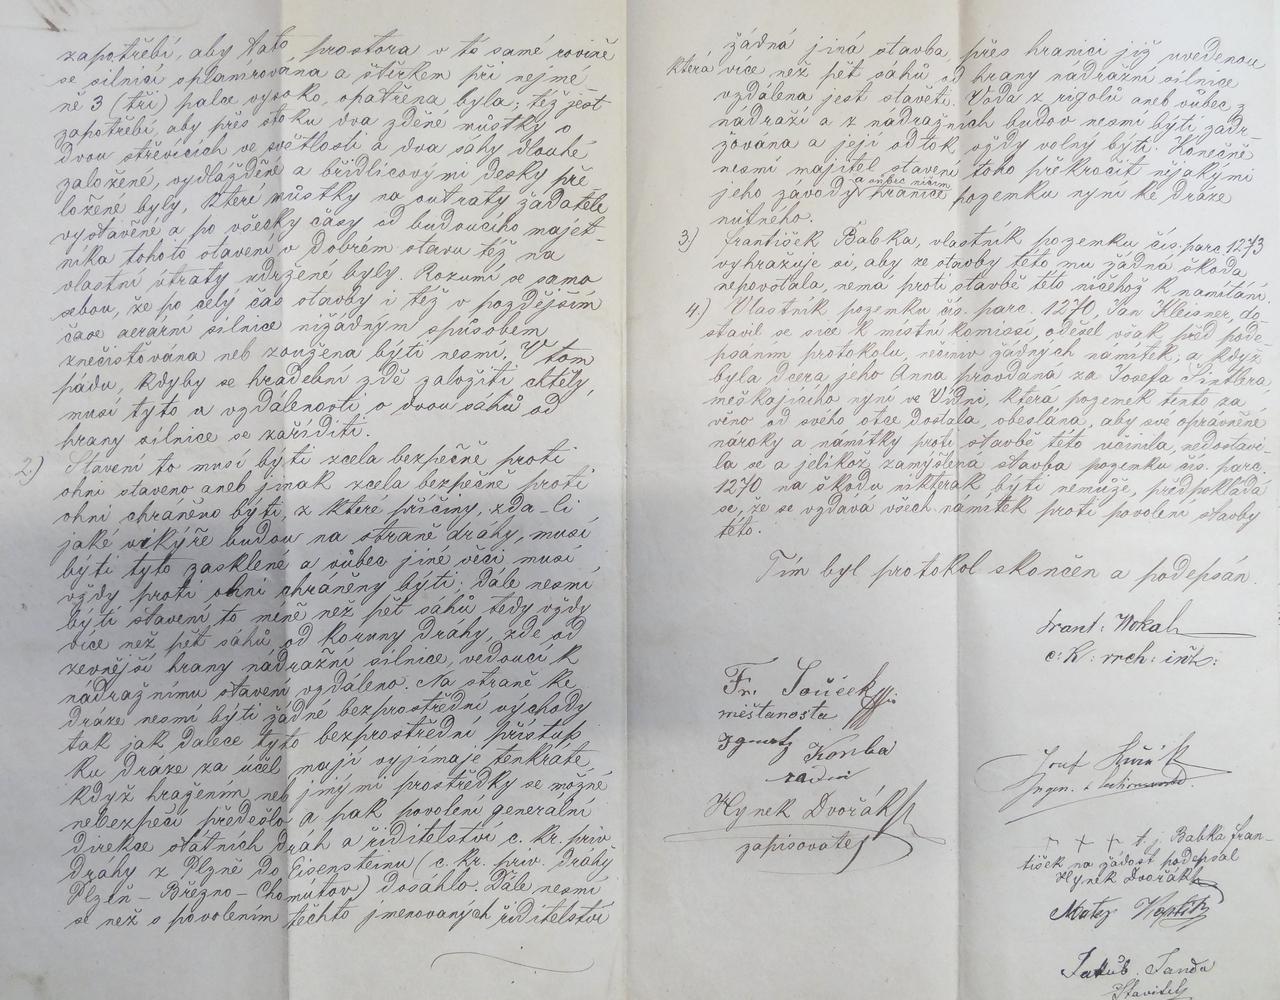 zapotřebí, aby tato prostora v té samé rovině
se silnicí splanírována a štěrkem při nejmé
ně 3 (tři) palce vysoko, opatřena byla; též jest
zapotřebí, aby přes stoku dva zděné můstky o
dvou střevících ve světlosti a dva sáhy dlouhé
založené, vydlážděné a břidlicovými desky pře
ložené byly, které můstky na outraty žadatele
vystavěné a po všecky časy od budoucího majet-
níka tohoto stavení v dobrém stavu též na
vlastní útraty udržené byly. Rozumí se samo
sebou, že po celý čas stavby i též v pozdějším
čase aerární silnice nižádným spůsobem
znečisťována neb zoužena býti nesmí. V tom
pádu, kdyby se hradební zdě založiti chtěly,
musí tyto u vzdálenosti o dvou sáhů od
hrany silnice se zaříditi.
2.) Stavení to musí býti zcela bezpečně proti
ohni staveno aneb jinak zcela bezpečně proti
ohni chráněno býti, z které příčiny, zda-li
jaké vikýře budou na straně dráhy, musí
býti tyto zasklené a vůbec jiné věci musí
vždy proti ohni chráněny býti; dále nesmí
býti stavení to méně než pět sáhů tedy vždy
více než pět sáhů od koruny dráhy, zde od
zevnější hrany nádražní silnice, vedoucí k
nádražnímu stavení vzdáleno. Na straně ke
dráze nesmí býti žádné bezprostřední východy
tak jak dalece tyto bezprostřední přístup
ku dráze za účel mají vyjímaje tenkráte,
když hrazením neb jinými prostředky se možné
nebezpečí předešlo a pak povolení generální
direkce státních drah a řiditelství c. kr. priv.
dráhy z Plzně do Eisensteinu (c. kr. priv. dráhy
Plzeň – Březno – Chomútov) dosáhlo. Dále nesmí
se než s povolením těchto jmenovaných řiditelství
žádná jiná stavba, přes hranici již uvedenou
která více než pět sáhů od hrany nádražní silnice
vzdálena jest stavěti. Voda z rigolů aneb vůbec z
nádraží a z nádražních budov nesmí býti zadr-
žována a její odtok vždy volný býti. Konečně
nesmí majitel stavení toho překročit nějakými
a vůbec ničím
jeho závody hranice pozemku nyní ke dráze
nutného.
3.) František Babka, vlastník pozemku čís. parc 1273
vyhražuje si, aby ze stavby této mu žádná škoda
nepovstala, nemá proti stavbě této ničehož k namítání.
4.) Vlastník pozemku čís. parc. 1270, Jan Kleisner, do
stavil se sice k místní komissi, odešel však před pode-
psáním protokolu, nečiniv žádných námitek, a když
byla dcera jeho Anna provdaná za Josefa
meškajícího nyní ve Vídni, která pozemek tento za
věno od svého otce dostala, obeslána, aby své oprávněné
nároky a námitky proti stavbě této učinila, nedostavi-
la se a jelikož zamýšlená stavba pozemku čís. parc.
1270 na škodu nikterak býti nemůže, předpokládá
se, že se vzdává všech námitek proti povolení stavby
této.
Tím byl protokol skončen a podepsán.
Frant: Wokal
c: k. vrch: inž:
Fr. Souček
měšťanosta
Ignatz Korba
radní
Hynek Dvořák
zapisovatel
Josef
+ + + t. j. Babka Fran-
tišek na žádost podepsal
Hynek Dvořák
Matej
Jakub Janda
Stavitel